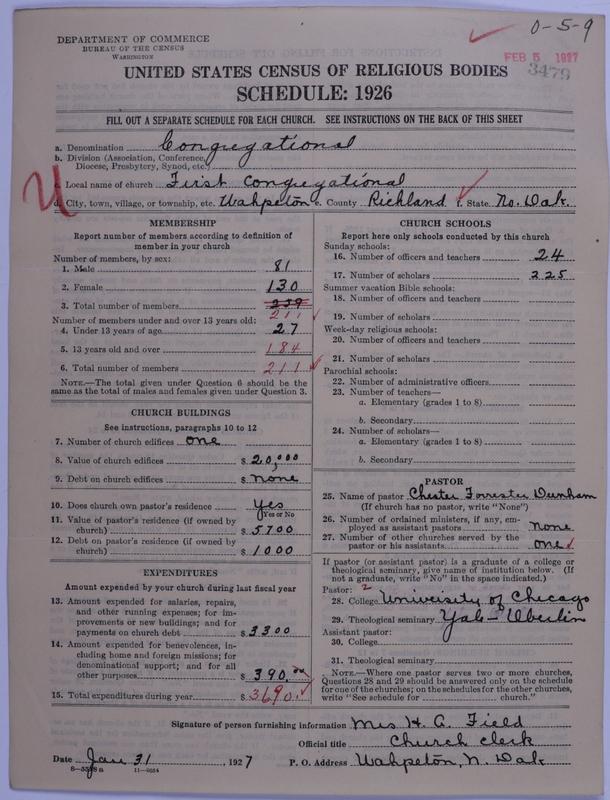 0-5-9
DEPARTMENT OF COMMERCE
BUREAU OF THE CENSUS
WASHINGTON
FEB 5 1927
3479
UNITED STATES CENSUS OF RELIGIOUS BODIES
SCHEDULE: 1926
FILL OUT A SEPARATE SCHEDULE FOR EACH CHURCH. SEE INSTRUCTIONS ON THE BACK OF THIS SHEET
a. Denomination Congregational
b. Division (Association, Conference, Diocese, Presbytery, Synod, etc.)
c. Local name of church First Congregational
d. City, town, village, or township, etc. Wahpeton e. County Richland f. State No. Dak.
MEMBERSHIP
Report number of members according to definition of
member in your church
Number of members, by sex:
1. Male 81
2. Female 130
3. Total number of members 239
211
Number of members under and over 13 years old:
4. Under 13 years of age 27
5. 13 years old and over 184
6. Total number of members 211
NOTE.—The total given under Question 6 should be the
same as the total of males and females given under Question 3.
CHURCH BUILDINGS
See instructions, paragraphs 10 to 12
7. Number of church edifices one
8. Value of church edifices $ 20,000
9. Debt on church edifices $ none
10. Does church own pastor's residence yes
(Yes or No)
11. Value of pastor's residence (if owned by
church) $ 5700
12. Debt on pastor's residence (if owned by
church) $ 1000
EXPENDITURES
Amount expended by your church during last fiscal year
13. Amount expended for salaries, repairs,
and other running expenses; for im-
provements or new buildings; and for
payments on church debt $ 3300
14. Amount expended for benevolences, in-
cluding home and foreign missions; for
denominational support; and for all
other purposes $ 390.00
15. Total expenditures during year $ 3690.
CHURCH SCHOOLS
Report here only schools conducted by this church
Sunday schools:
16. Number of officers and teachers 24
17. Number of scholars 225
Summer vacation Bible schools:
18. Number of officers and teachers
19. Number of scholars
Week-day religious schools:
20. Number of officers and teachers
21. Number of scholars
Parochial schools:
22. Number of administrative officers
23. Number of teachers—
a. Elementary (grades 1 to 8)
b. Secondary
24. Number of scholars—
a. Elementary (grades 1 to 8)
b. Secondary
PASTOR
25. Name of pastor Chester Forrester Dunham
(If church has no pastor, write "None")
26. Number of ordained ministers, if any, em-
ployed as assistant pastors None
27. Number of other churches served by the
pastor or his assistants one
If pastor (or assistant pastor) is a graduate of a college or
theological seminary, give name of institution below. (If
not a graduate, write "No" in the space indicated.)
Pastor: 2
28. College University of Chicago
29. Theological seminary Yale - Oberlin
Assistant pastor:
30. College
31. Theological seminary
NOTE.—Where one pastor serves two or more churches,
Questions 28 and 29 should be answered only on the schedule
for one of the churches; on the schedules for the other churches,
write "See schedule for church."
Signature of person furnishing information Mrs H. G. Field
Official title Church Clerk
Date Jan 31, 1927 P. O. Address Wahpeton, N. Dak.